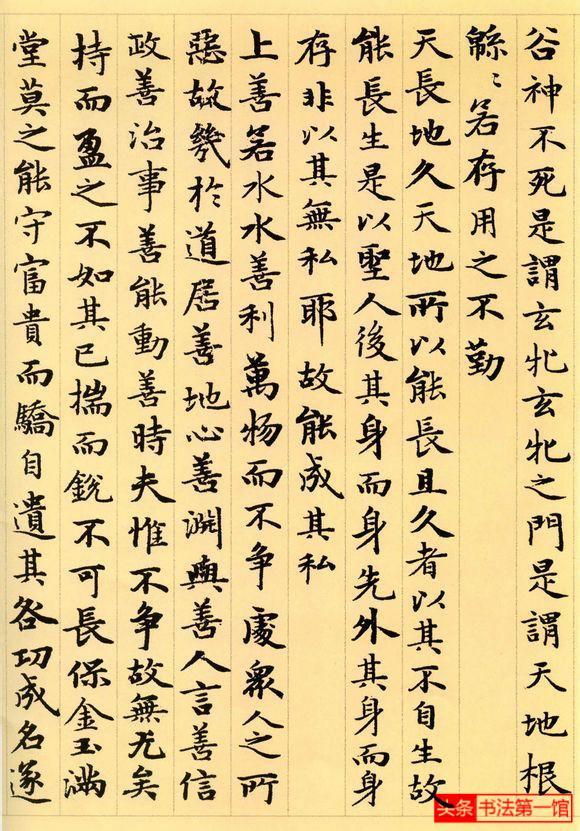 谷神不死是謂玄牝玄牝之門是謂天地根
緜〻若存用之不勤
天長地久天地所以能長且久者以其不自生故
能長生是以聖人後其身而身先外其身而身
存非以其無私耶故能成其私
上善若水水善利萬物而不爭處眾人之所
惡故幾於道居善地心善淵與善人言善信
政善治事善能動善時夫惟不爭故無尤矣
持而盈之不如其已揣而銳不可長保金玉滿
堂莫之能守富貴而驕自遺其咎功成名遂
头条 书法第一馆